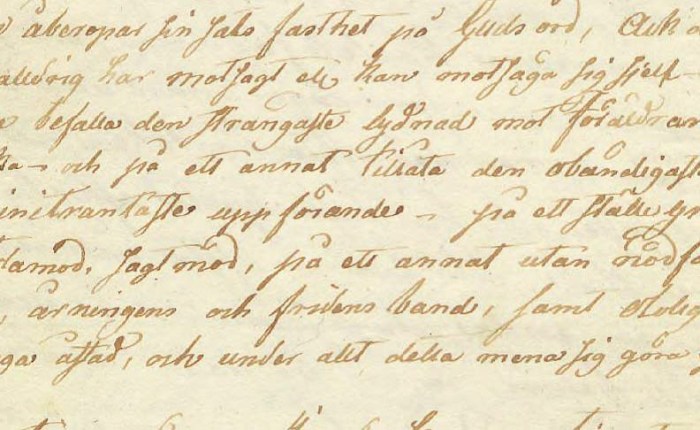 åberopar sin saks fasthet på Guds ord, Ack
aldrig har motsagt ell kan motsäga sig sjelf -
befalla den strängaste lydnad mot föräldrar
och på ett annat tillåta den obändigaste
uppförande - på ett ställe
lamod, sagtmod, på ett annat utan nödfa
ärningens och fridens band, samt
ga åstad, och under allt detta mena sig göra